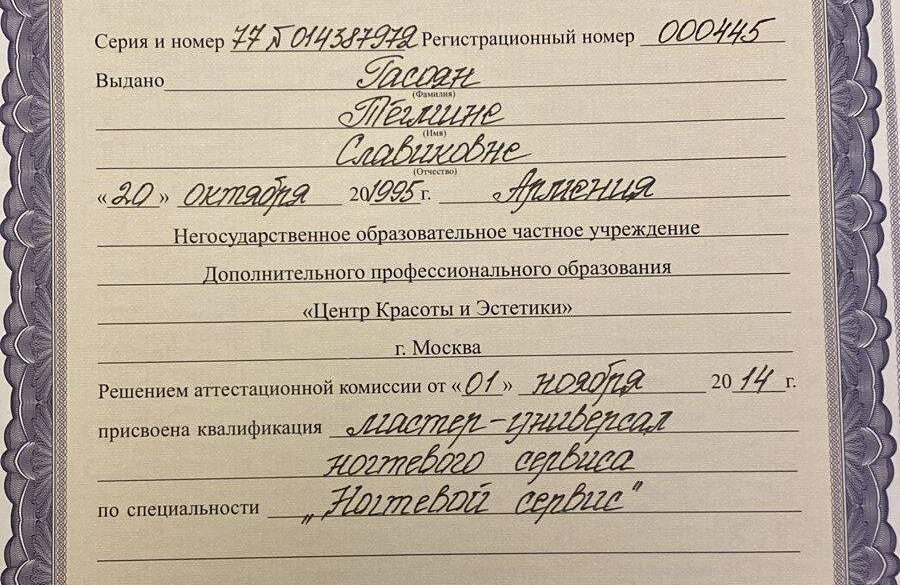 Серия и номер 77 № 014387972 Регистрационный номер 000445
Выдано Гасоян
(Фамилия)
Тегмине
(Имя)
Славиковне
(Отчество)
« 20 » октября 201995 г. Армения
Негосударственное образовательное частное учреждение
Дополнительного профессионального образования
«Центр Красоты и Эстетики»
г. Москва
Решением аттестационной комиссии от « 01 » ноября 20 14 г.
присвоена квалификация мастер-универсал
ногтевого сервиса
по специальности "Ногтевой сервис"